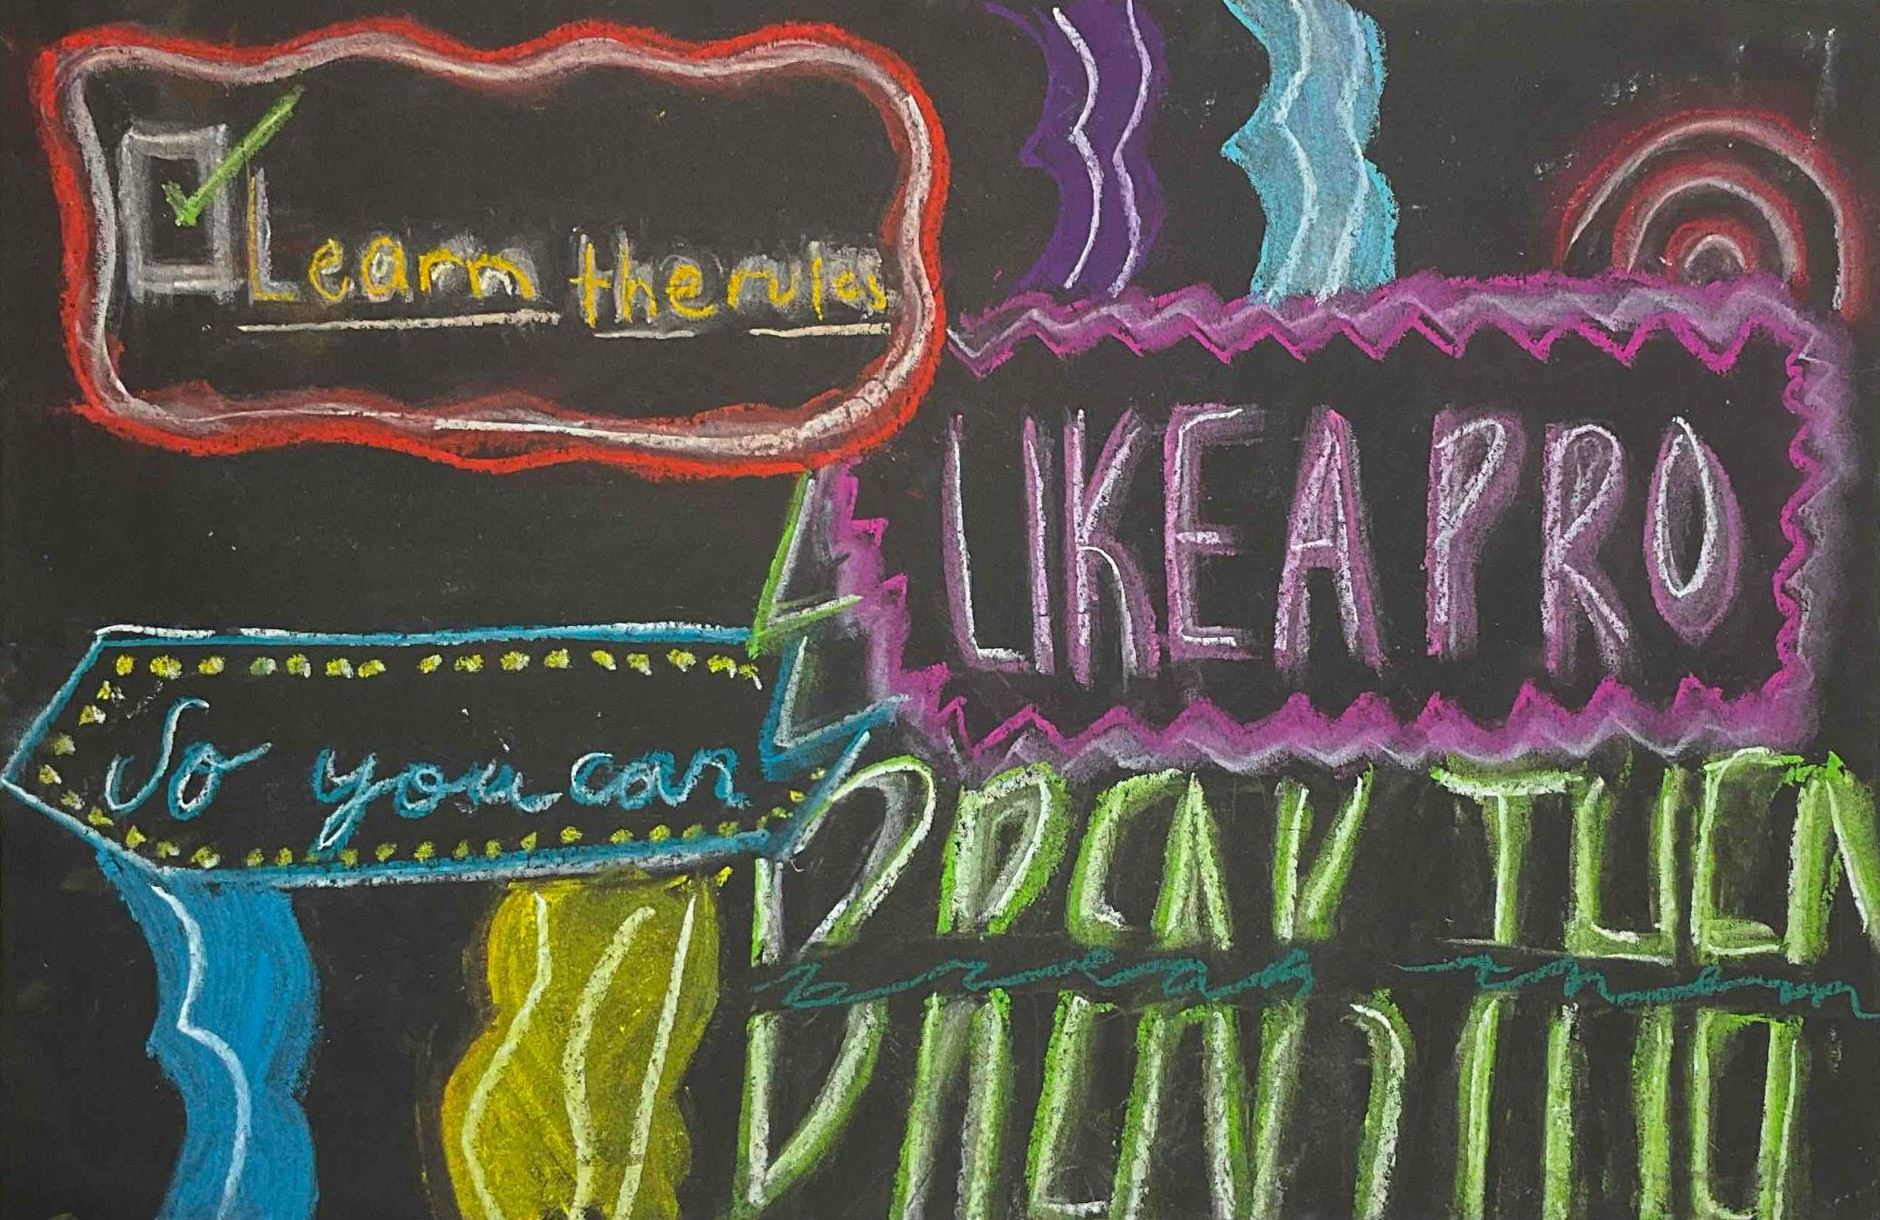 Learn the rules
LIKE A PRO
So you can
BREAK THEM
break them